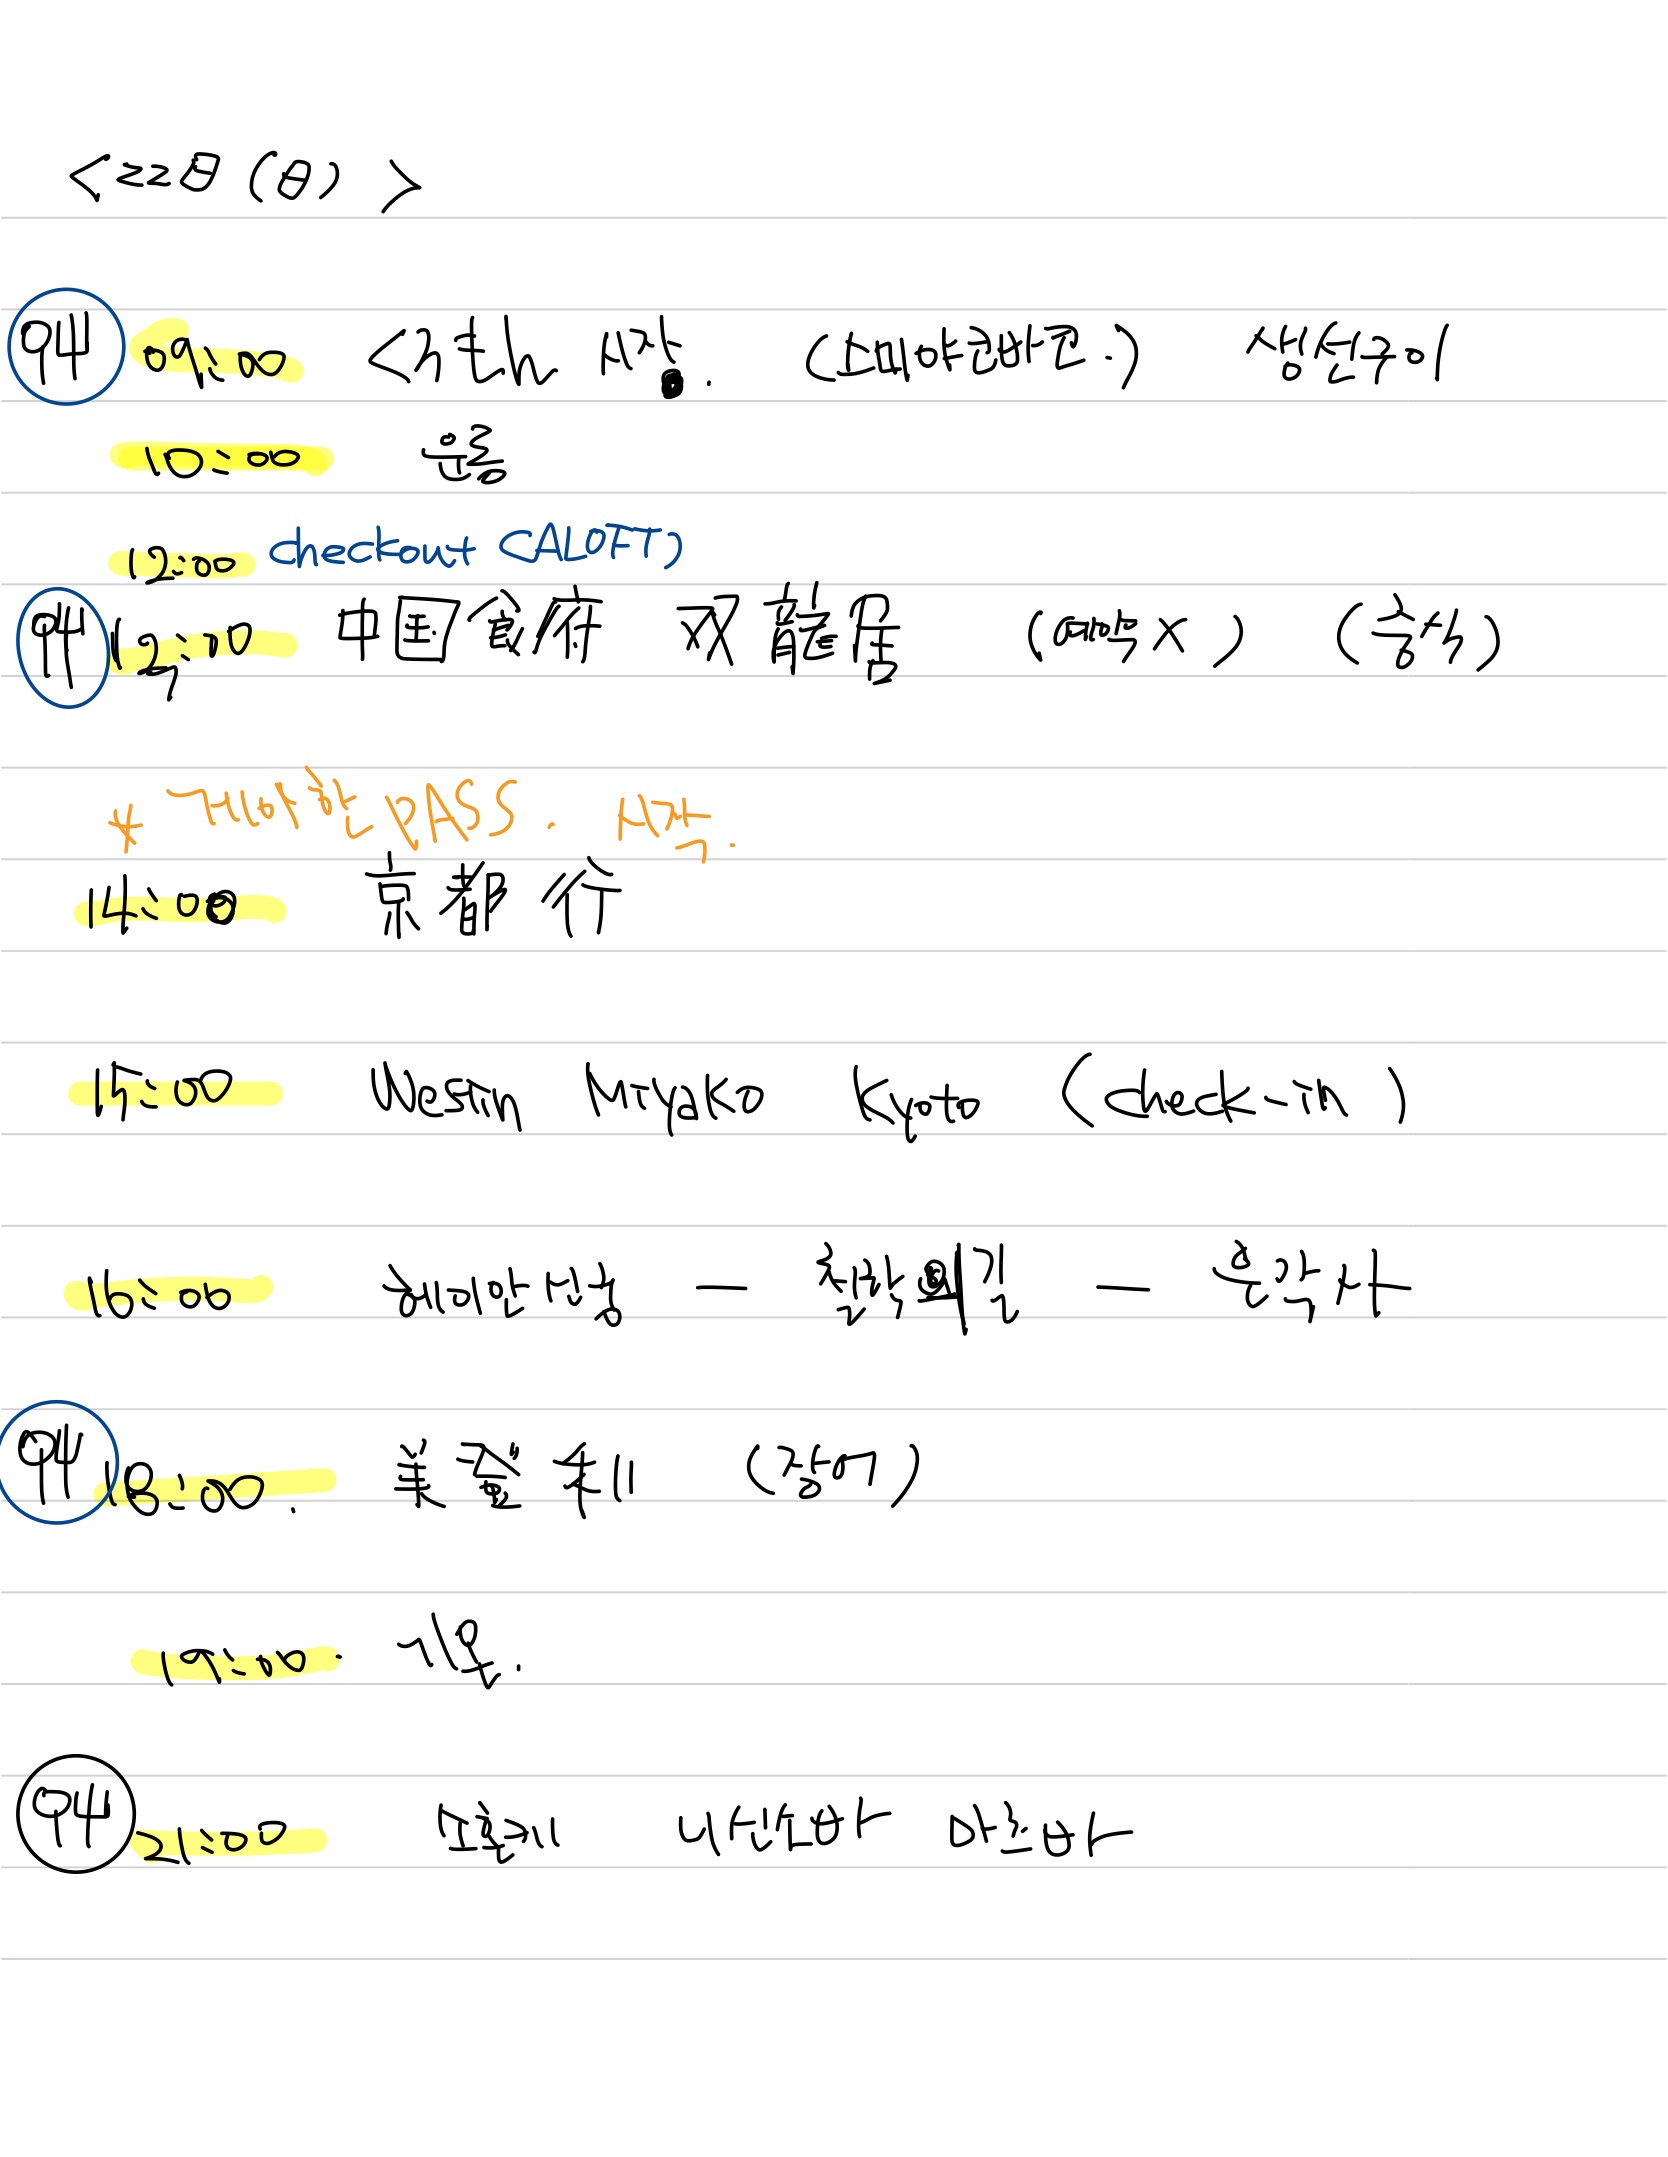 <22日(日)>
먹 09:00 <구로몬 시장. (소미야큐반코.) 생선구이
10:00 운동
12:00 checkout (ALOFT)
먹 12:00 中国食府 双龍居 (예약X) (중식)
* 게이한 PASS. 시작.
14:00 京都 行
15:00 Westin Miyako Kyoto (check-in)
16:00 헤이안 신궁 — 철학의길 — 은각사
18:00. (장어)
19:00. 기온.
21:00 소혼케 니신소바 마츠바